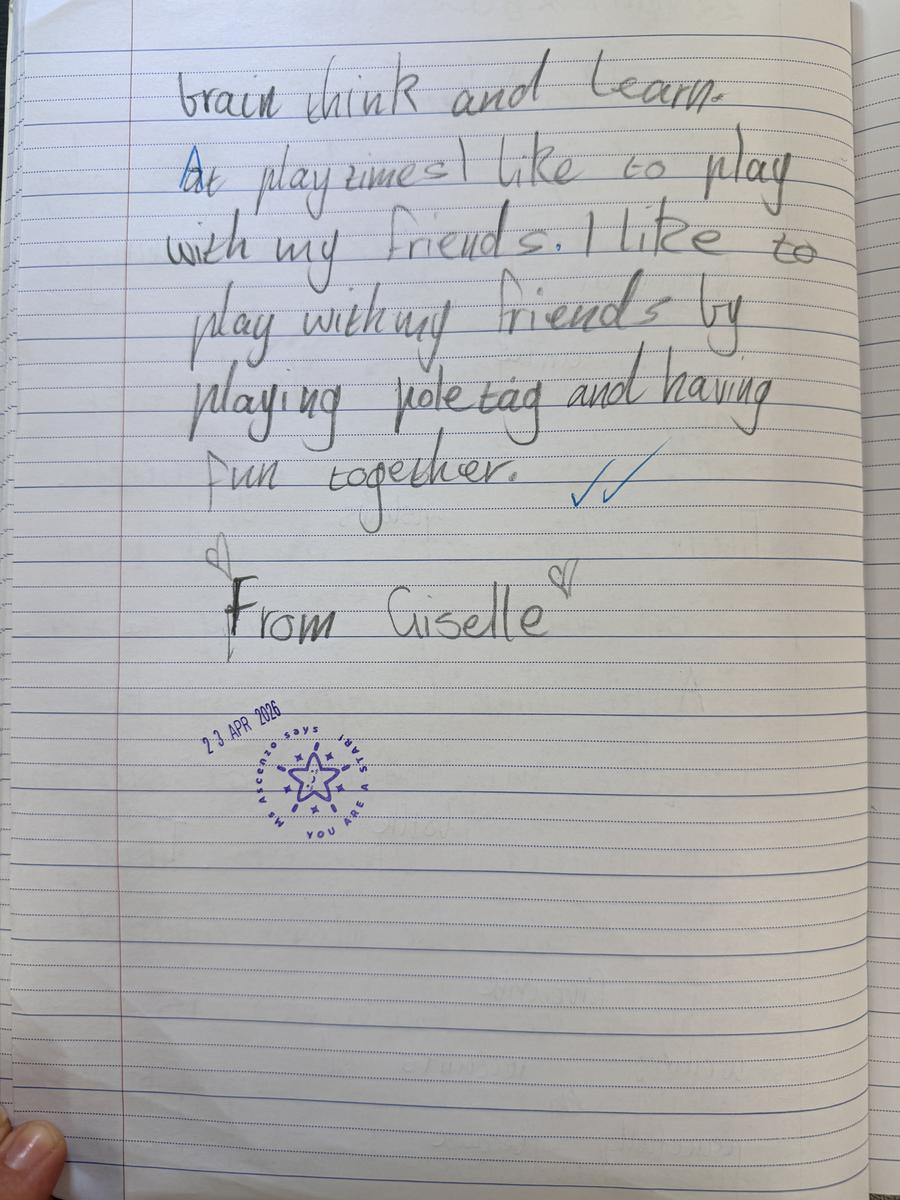 brain think and learn.
At playtimes I like to play
with my friends. I like to
play with my friends by
playing pole tag and having
fun together.
From Giselle
23 APR 2026
Ms Ascenzo says
YOU ARE A STAR!